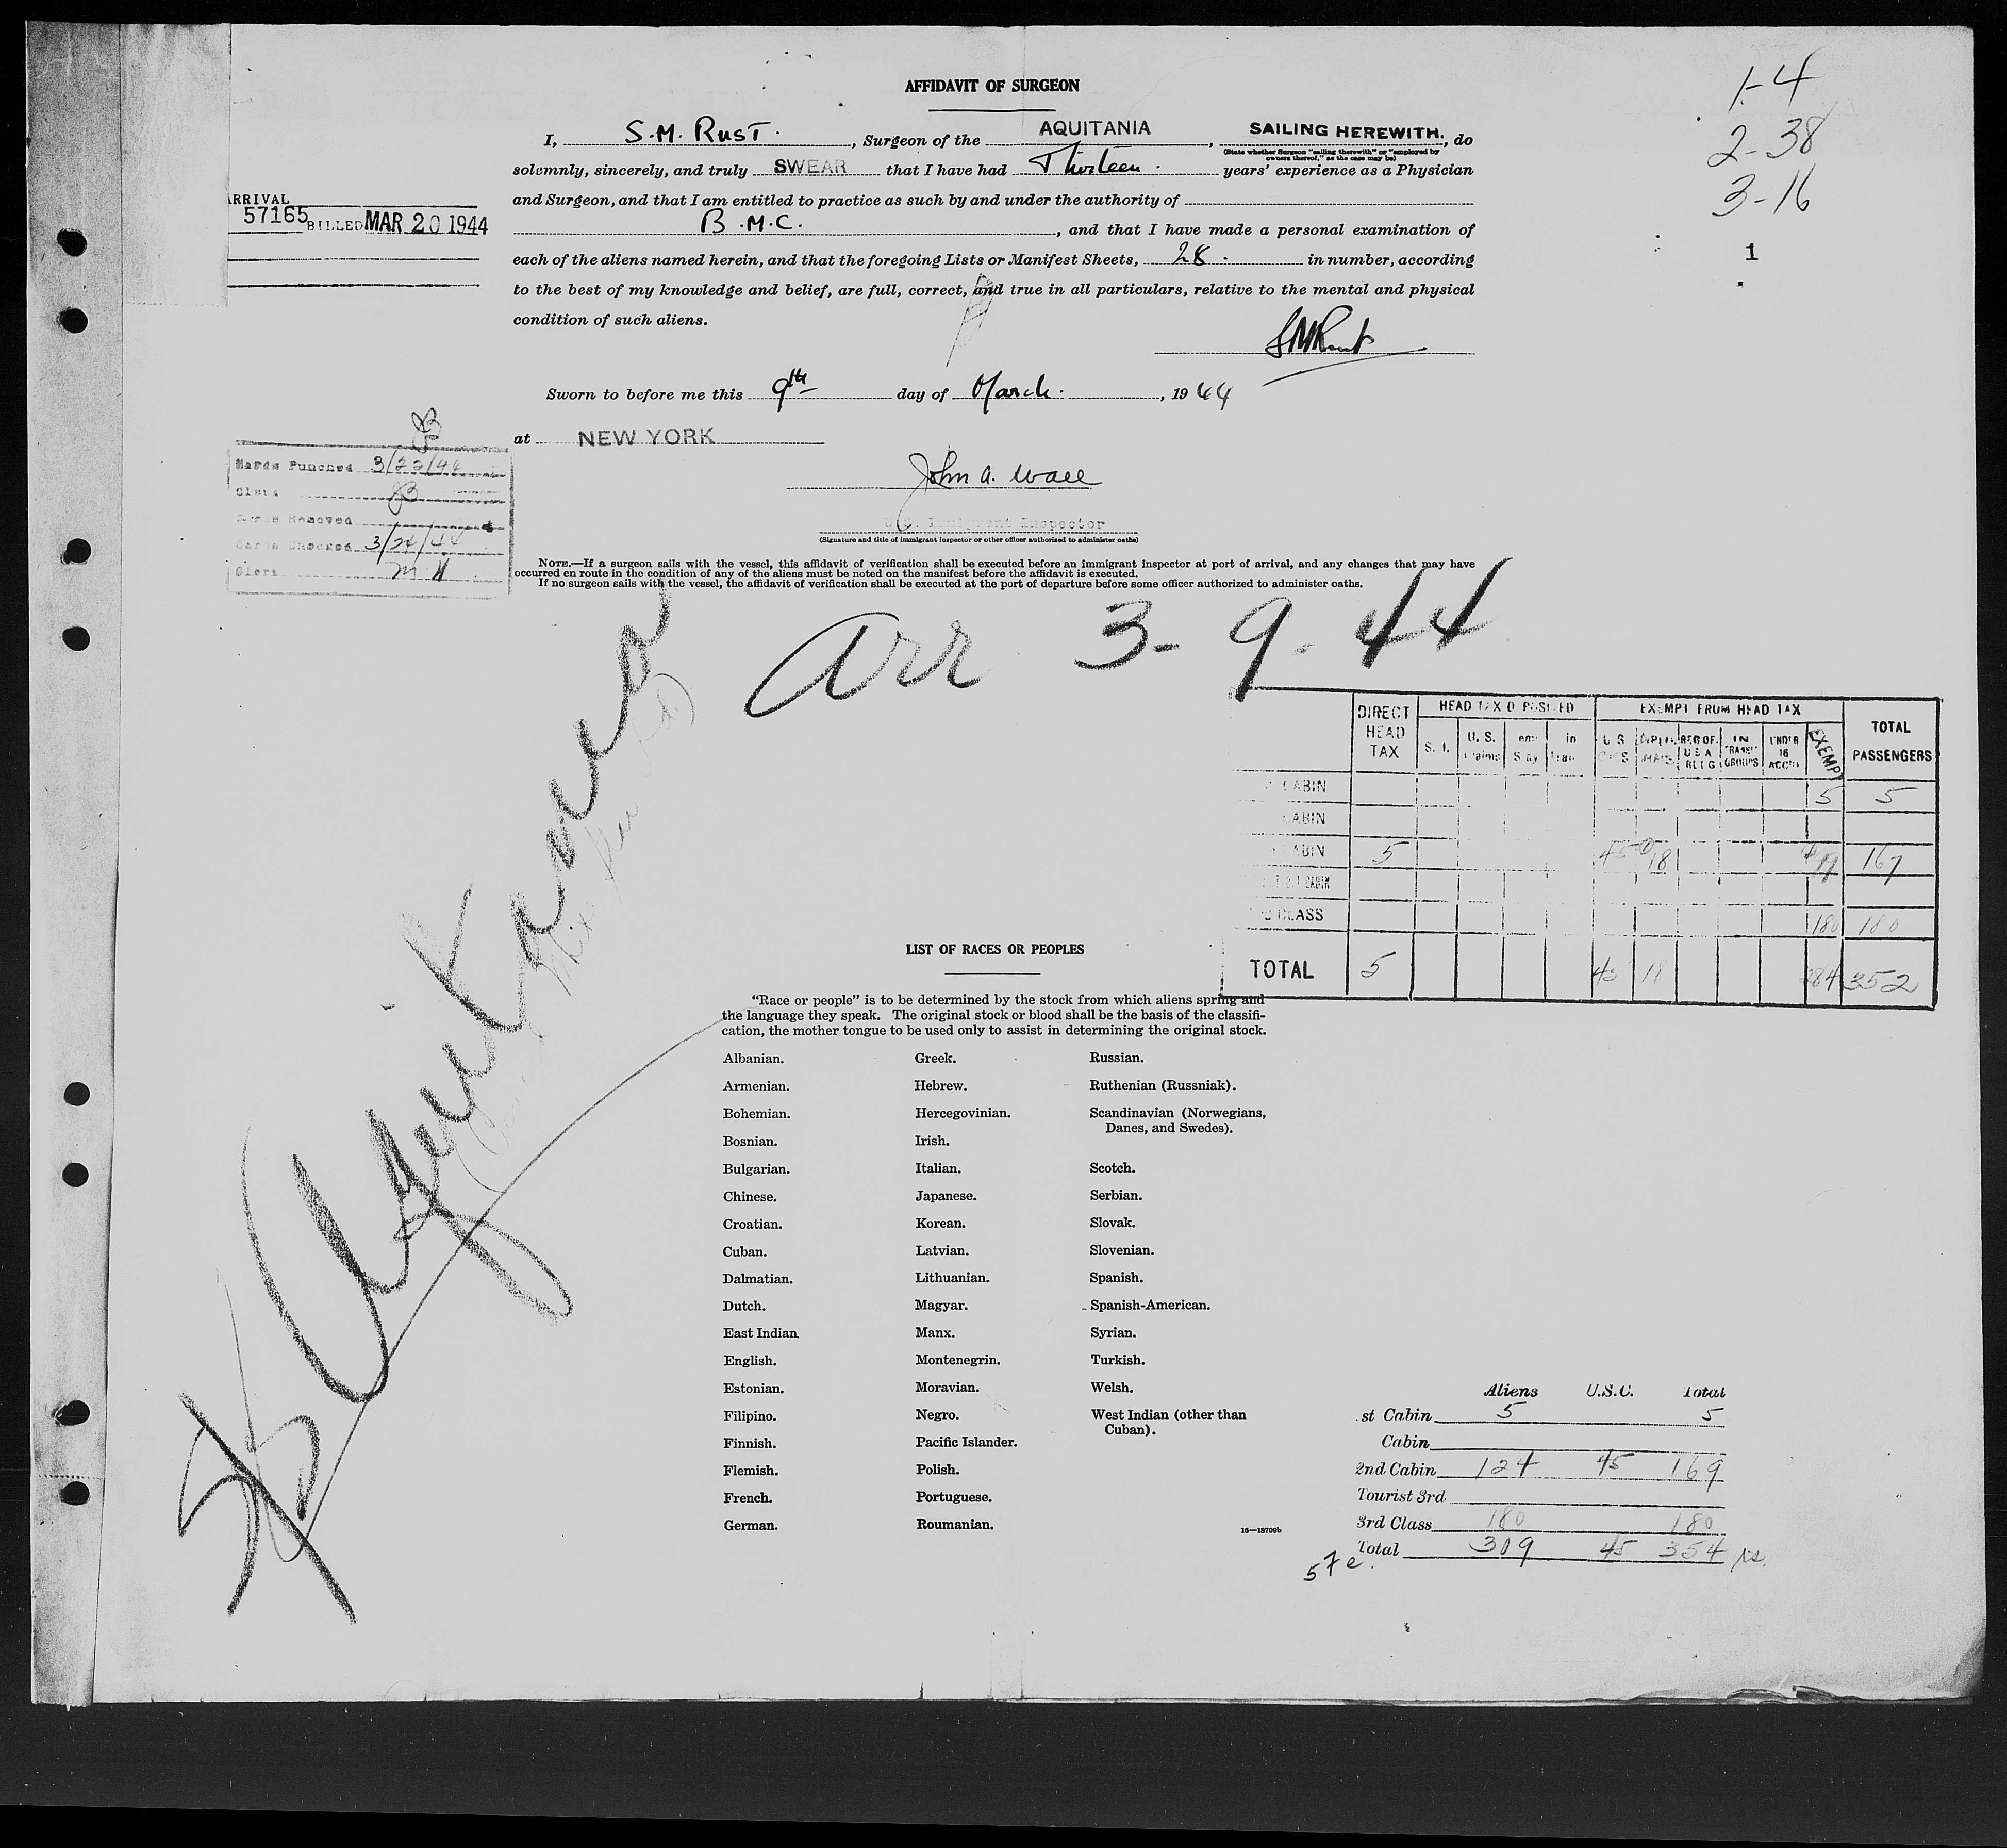 AFFIDAVIT OF SURGEON
1-4
2-38
3-16
1
I, S.M. RUST. , Surgeon of the AQUITANIA , SAILING HEREWITH. , do
(State whether Surgeon "sailing therewith" or "employed by
owners thereof," as the case may be)
solemnly, sincerely, and truly SWEAR that I have had Thirteen. years' experience as a Physician
and Surgeon, and that I am entitled to practice as such by and under the authority of
B.M.C. , and that I have made a personal examination of
each of the aliens named herein, and that the foregoing Lists or Manifest Sheets, 28. in number, according
to the best of my knowledge and belief, are full, correct, and true in all particulars, relative to the mental and physical
condition of such aliens.
SMRust
ARRIVAL
57165 BILLED MAR 20 1944
Sworn to before me this 9th day of March. , 1944
at NEW YORK
John A. Wall
U.S. Immigrant Inspector
(Signature and title of immigrant inspector or other officer authorized to administer oaths)
Punched 3/22/44
Clerk JB
Removed
Cards Checked 3/24/44
Clerk
NOTE.—If a surgeon sails with the vessel, this affidavit of verification shall be executed before an immigrant inspector at port of arrival, and any changes that may have
occurred en route in the condition of any of the aliens must be noted on the manifest before the affidavit is executed.
If no surgeon sails with the vessel, the affidavit of verification shall be executed at the port of departure before some officer authorized to administer oaths.
Arr 3-9-44
Aquitania
DIRECT HEAD TAX
HEAD TAX DEPOSITED
EXEMPT FROM HEAD TAX
TOTAL PASSENGERS
S. I. U. S. Claims in Tran
IN TRANSIT GROUPS UNDER 16 ACCO EXEMPT
CABIN 5 5
CABIN
CABIN 5 45 18 167
CABIN
CLASS 180 180
TOTAL 5 45 18 284 352
LIST OF RACES OR PEOPLES
"Race or people" is to be determined by the stock from which aliens spring and
the language they speak. The original stock or blood shall be the basis of the classifi-
cation, the mother tongue to be used only to assist in determining the original stock.
Albanian.
Armenian.
Bohemian.
Bosnian.
Bulgarian.
Chinese.
Croatian.
Cuban.
Dalmatian.
Dutch.
East Indian
English.
Estonian.
Filipino.
Finnish.
Flemish.
French.
German.
Greek.
Hebrew.
Hercegovinian.
Irish.
Italian.
Japanese.
Korean.
Latvian.
Lithuanian.
Magyar.
Manx.
Montenegrin.
Moravian.
Negro.
Pacific Islander.
Polish.
Portuguese.
Roumanian.
Russian.
Ruthenian (Russniak).
Scandinavian (Norwegians,
Danes, and Swedes).
Scotch.
Serbian.
Slovak.
Slovenian.
Spanish.
Spanish-American.
Syrian.
Turkish.
Welsh.
West Indian (other than
Cuban).
16—18709b
Aliens U.S.C. Total
st Cabin 5 5
Cabin
2nd Cabin 124 45 169
Tourist 3rd
3rd Class 180 180
Total 309 45 354
57e.